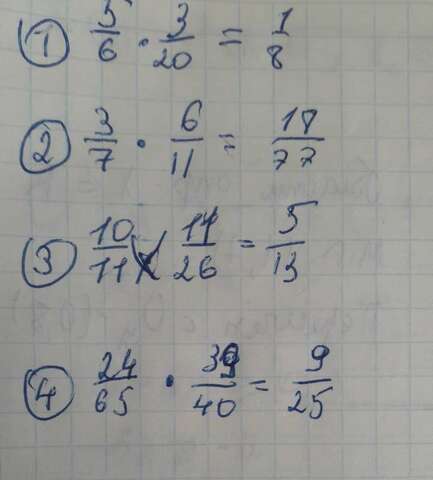 ① 5/6 · 3/20 = 1/8
② 3/7 · 6/11 = 18/77
③ 10/11 · 11/26 = 5/13
④ 24/65 · 39/40 = 9/25